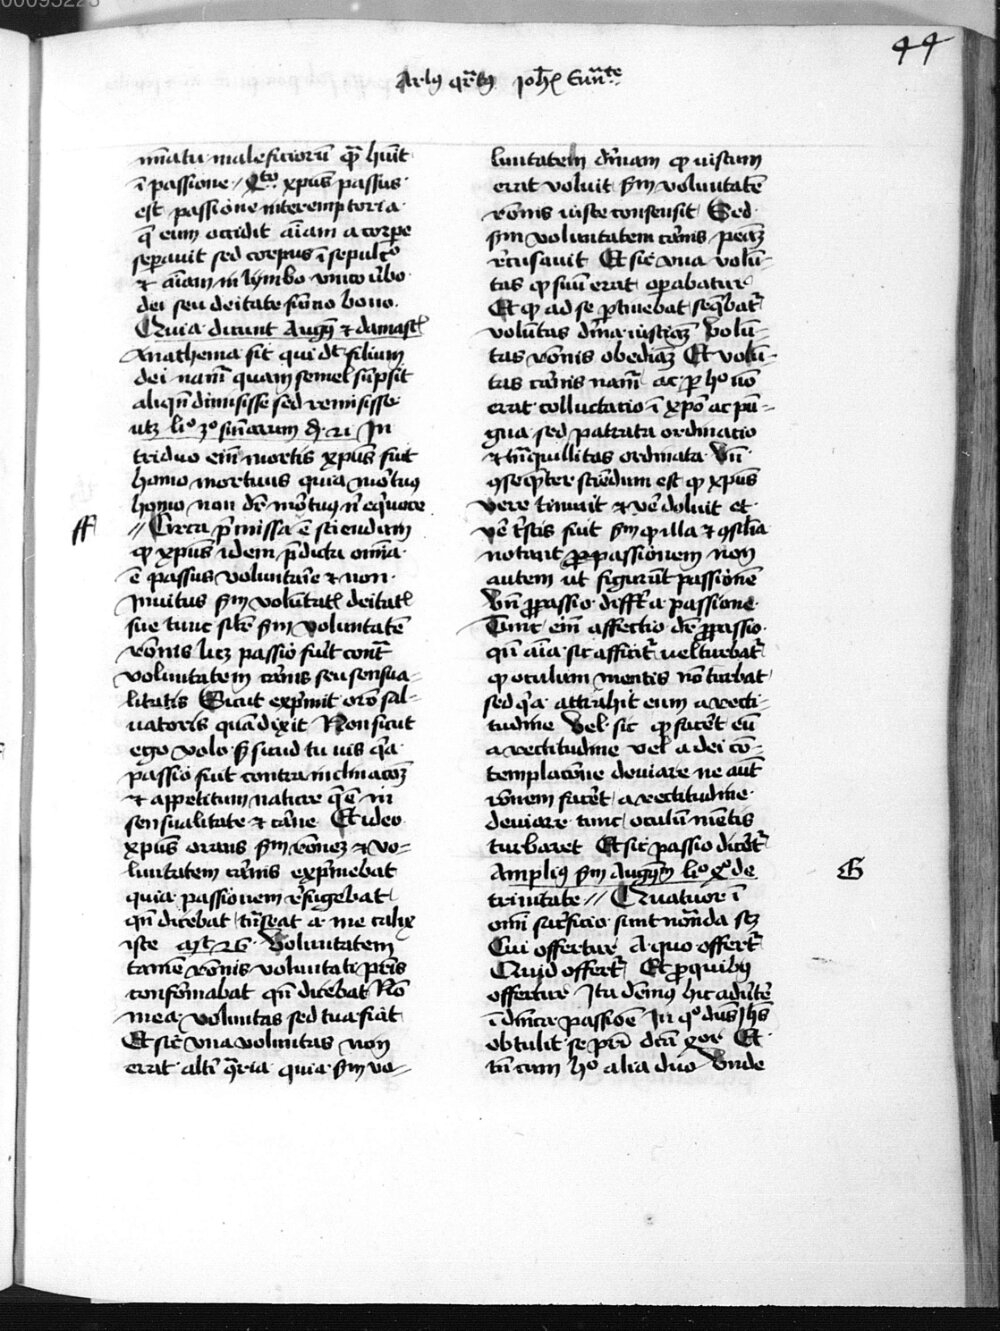 44
Ar̄ls qr̄ts Joh̄s Eun̄te
mīatu maleficiorū qm̄ hūit
ī passione / Qto xpūs passus
est passione interemptoria
q̄ eum occidit aīam a corpe
sep̄auit sed corpus ī sepulcō
⁊ aīam in lymbo vnito v̄bo
dei seu deitate sūmo bono
Quia dicunt Aug ⁊ damasc̄
Anathema sit qui dt̄ filium
dei nam̄ quam semel sūpsit
aliqn̄ dimisisse sed remisisse
utz lio 3o sūīarum di 21 In
triduo em̄ mortis xpūs fuit
homo mortuus quia mortuꝯ
homo non dr̄ mortuꝯ n̄ eq̄uoce
ff
// Circa p̄missa ē sciendum
qꝫ xpūs idem p̄dicta om̄ia
ē passus voluntarie ⁊ non
Inuitus sm̄ voluntatē deitatis
sue tunc silr̄ sm̄ voluntatē
rōnis lic̄ passio fuit cont̄
voluntatem carnis seu sensua-
litatis Sicut exp̄mit orō sal-
uatoris quādixit Non sicut
ego volo sꝫ sicud tu uis qr̄a
passio fuit contra inclinacōꝫ
⁊ appetitum nature q̄ ē in
sensualitate ⁊ carne Et ideo
xpūs orans sm̄ rōnem ⁊ vo-
luntatem carnis exp̄mebat
quia passionem refugebat
qn̄ dicebat trāseat a me calix
iste mt̄ 26 Voluntatem
tamē rōnis voluntati pr̄is
confōmabat qn̄ dicebat Nō
mea voluntas sed tua fiat
Et sic vna voluntas non
erat alti 9r̄ria quia sm̄ vo-
luntatem dīuinam qꝫ iustum
erat voluit sm̄ voluntatē
rōnis iuste consensit Sed
sm̄ voluntatem carnis penāꝫ
recusauit Et sic vna volū-
tas qꝫ suū erat operabatur
Et qꝫ ad se ptinebat sequebat
voluntas dīna iusticiaꝫ volū-
tas rōnis obediaꝫ Et volū-
tas carnis nam̄ ac p ho nō
erat colluctatio ī xpo ac pu-
gna sed patrata ordinatio
⁊ trāquillitas ordinata Vn̄
9sequēter sciendum est qꝫ xpūs
vere timuit ⁊ ve doluit et
vē tristis fuit sm̄ qꝫ illa ⁊ 9silia
notant propassionem non
autem ut figurūt passionē
Vn̄ propassio differt a passione
Tunc em̄ affectio dr̄ propassio
qn̄ aīa sic afficit̄ vel turbat̄
qꝫ oculum mentis nō turbat
sed qr̄a attrahit eum a recti-
tudine Vel sic qꝫ facet eū
a rectitudine vel a dei cō-
templacōne deuiare ne aut̄
rōnem facet a rectitudine
deuiare tunc oculū mentis
turbaret Et sic passio dicet̄
Amplius sm̄ Augm̄ lio xo de
G
trinitate // Quatuor ī
omī sacrificio sunt notanda scꝫ
Cui offertur A quo offert̄
Quid offert̄ Et p quibꝫ
offertur Ita demus hic aduerte
ī dīnica passiōe In qo dūs Jhs
obtulit se pr̄i dicā xor Et
tm̄ cum ho alia duo Vnde